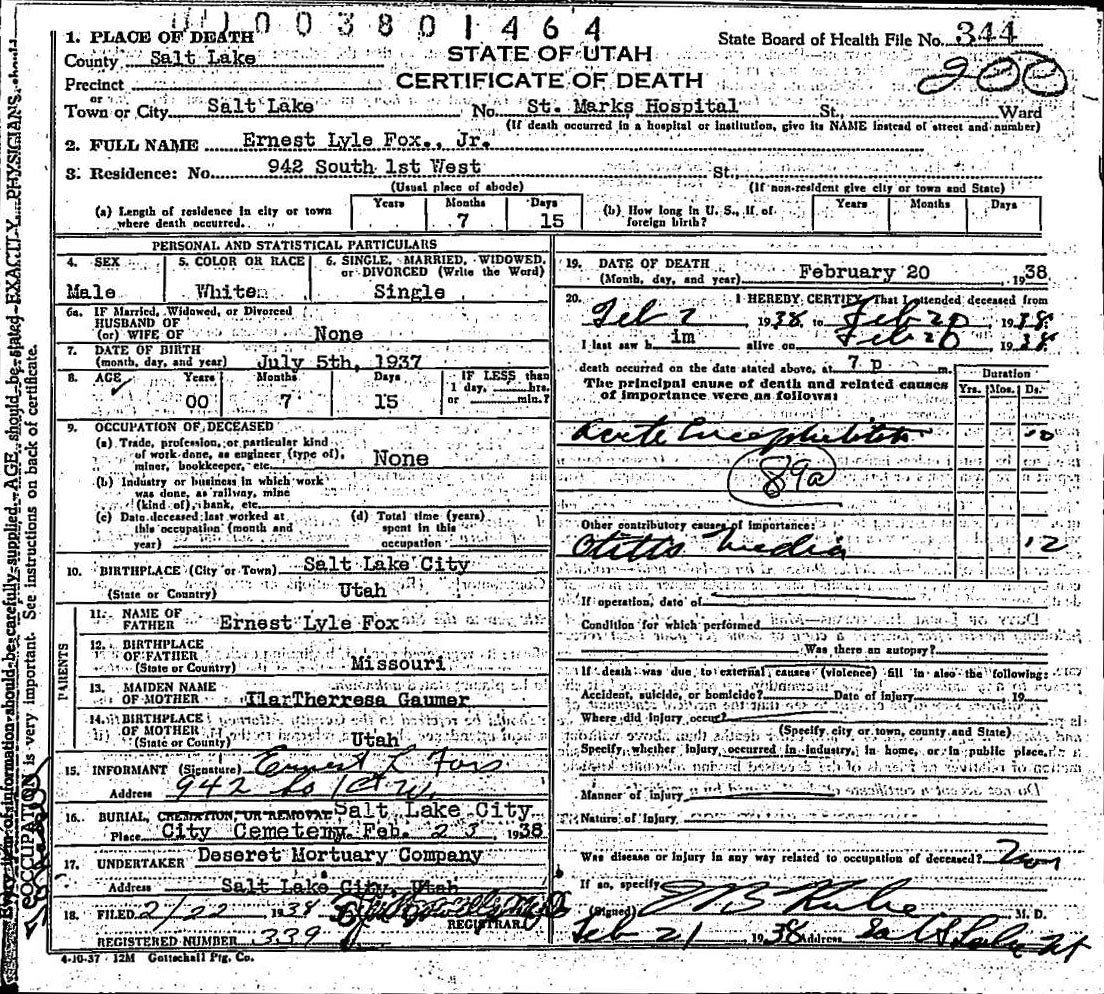 003801464
1. PLACE OF DEATH
STATE OF UTAH
State Board of Health File No. 344
County Salt Lake
CERTIFICATE OF DEATH
200
Precinct
or
Town or City Salt Lake No. St. Marks Hospital St., Ward
(If death occurred in a hospital or institution, give its NAME instead of street and number)
2. FULL NAME Ernest Lyle Fox., Jr.
3. Residence: No. 942 South 1st West St.,
(Usual place of abode) (If non-resident give city or town and State)
(a) Length of residence in city or town where death occurred. Years Months 7 Days 15
(b) How long in U. S., if of foreign birth? Years Months Days
PERSONAL AND STATISTICAL PARTICULARS
4. SEX Male
5. COLOR OR RACE White
6. SINGLE, MARRIED, WIDOWED, or DIVORCED (Write the Word) Single
6a. IF Married, Widowed, or Divorced
HUSBAND OF
(or) WIFE OF None
7. DATE OF BIRTH
(month, day, and year) July 5th, 1937
8. AGE Years 00 Months 7 Days 15 IF LESS than 1 day, hrs. or min.?
9. OCCUPATION OF DECEASED
(a) Trade, profession, or particular kind
of work done, as engineer (type of),
miner, bookkeeper, etc. None
(b) Industry or business in which work
was done, as railway, mine
(kind of), bank, etc.
(c) Date deceased last worked at
this occupation (month and
year)
(d) Total time (years)
spent in this
occupation
10. BIRTHPLACE (City or Town) Salt Lake City
(State or Country) Utah
PARENTS
11. NAME OF
FATHER Ernest Lyle Fox
12. BIRTHPLACE
OF FATHER
(State or County) Missouri
13. MAIDEN NAME
OF MOTHER Ila Theresa Gaumer
14. BIRTHPLACE
OF MOTHER
(State or County) Utah
15. INFORMANT (Signature) Ernest L Fox
Address 942 So 1st W.
16. BURIAL, CREMATION, OR REMOVAL Salt Lake City
Place City Cemetery Feb. 23 1938
17. UNDERTAKER Deseret Mortuary Company
Address Salt Lake City, Utah
18. FILED 2/22 1938
REGISTRAR
REGISTERED NUMBER 339
4-10-37 12M Gottschall Ptg. Co.
19. DATE OF DEATH
(Month, day, and year) February 20 1938
20. I HEREBY CERTIFY, That I attended deceased from
Feb 2, 1938, to Feb 20, 1938.
I last saw him alive on Feb 20 1938
death occurred on the date stated above, at 7 p m.
The principal cause of death and related causes
of importance were as follows:
Duration
Yrs. Mos. Ds.
Acute Encephalitis 10
89a
Other contributory causes of importance:
Otitis Media 12
If operation, date of
Condition for which performed
Was there an autopsy?
If death was due to external causes (violence) fill in also the following:
Accident, suicide, or homicide? Date of injury 19
Where did injury occur?
(Specify city or town, county and State)
Specify, whether injury occurred in industry, in home, or in public place.
Manner of injury
Nature of Injury
Was disease or injury in any way related to occupation of deceased?
If so, specify
(Signed) M. D.
Feb 21 1938 Address Salt Lake Ut
Every item of information should be carefully supplied. AGE should be stated EXACTLY. PHYSICIANS should
OCCUPATION is very important. See instructions on back of certificate.